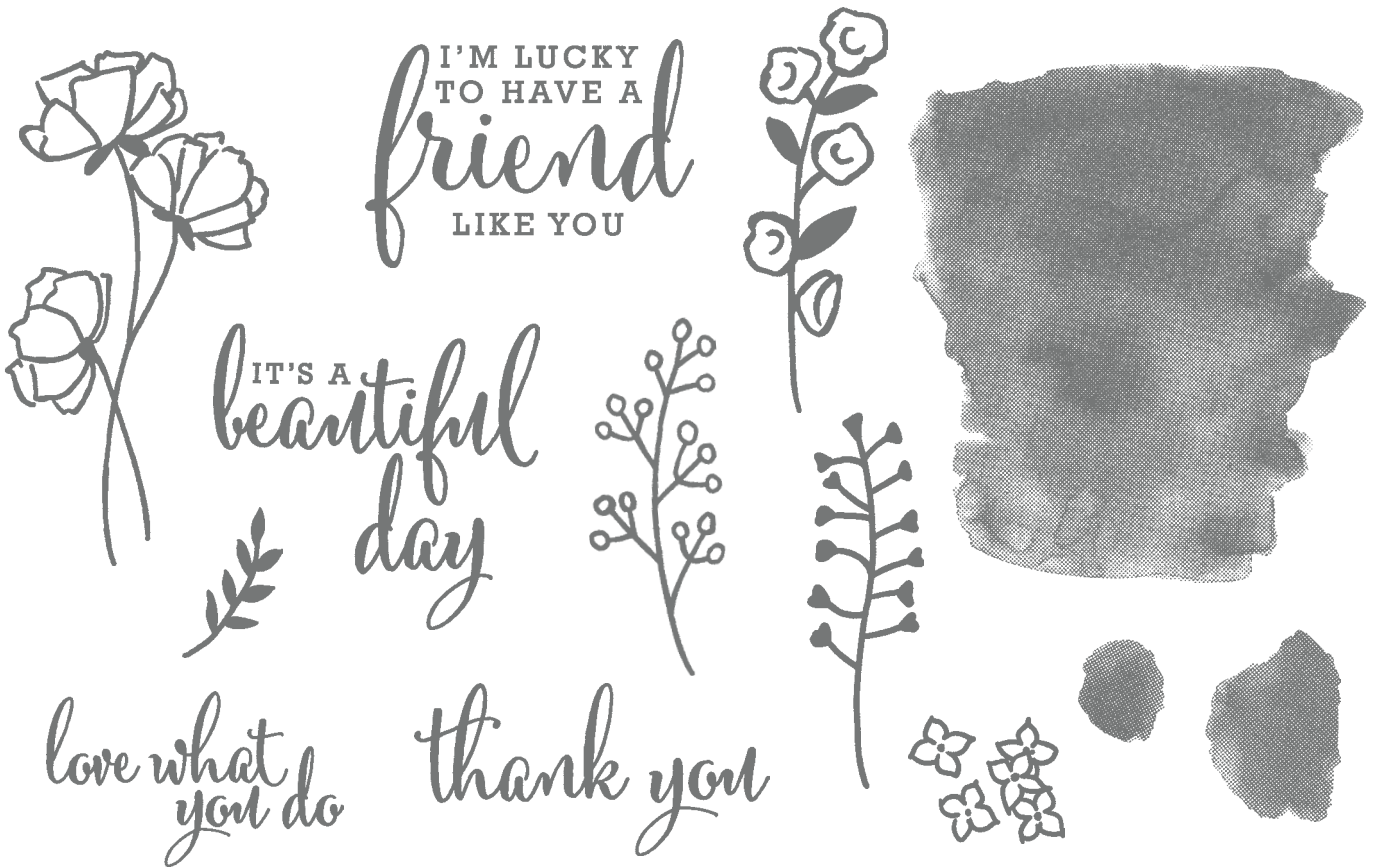 I'M LUCKY
TO HAVE A
friend
LIKE YOU
IT'S A
beautiful
day
love what
you do
thank you